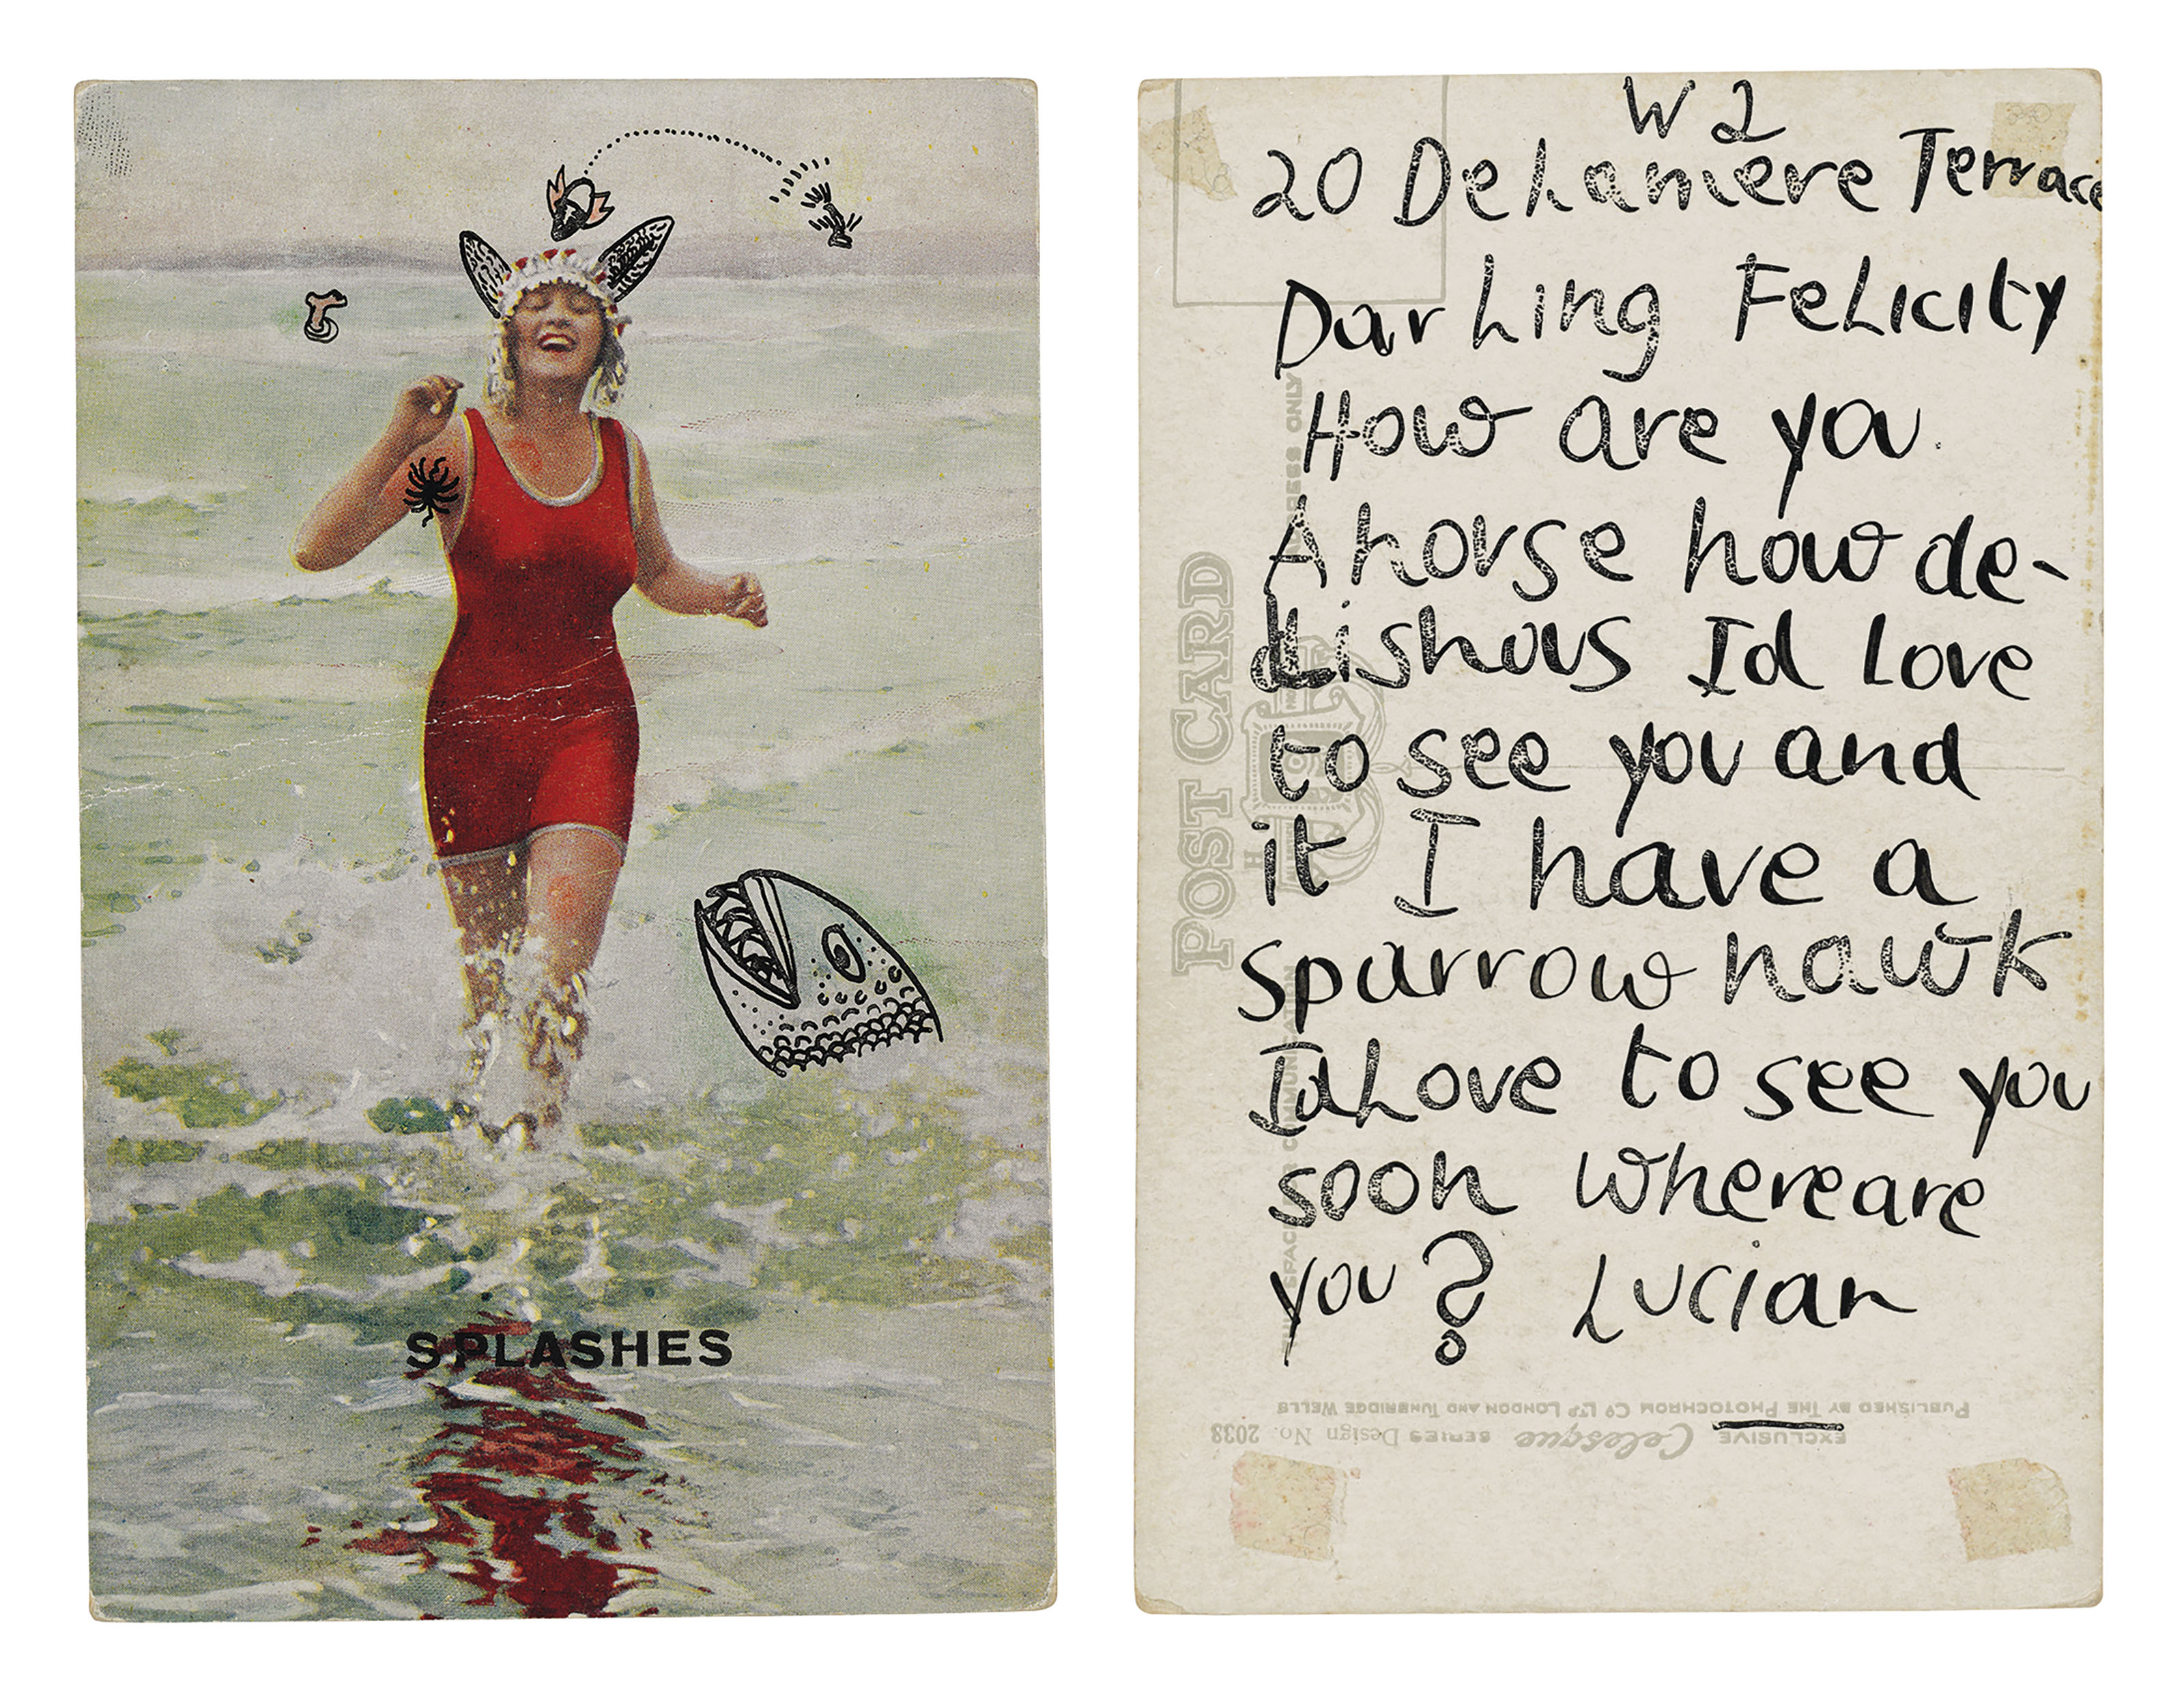 SPLASHES
W2
20 Delamere Terrace
Darling Felicity
How are you
A horse how de-
lishous Id love
to see you and
it I have a
sparrow hawk
Id Love to see you
soon where are
you? Lucian
POST CARD
PUBLISHED BY THE PHOTOCHROM CO LTD LONDON AND TUNBRIDGE WELLS
EXCLUSIVE Celesque SERIES Design No. 2038